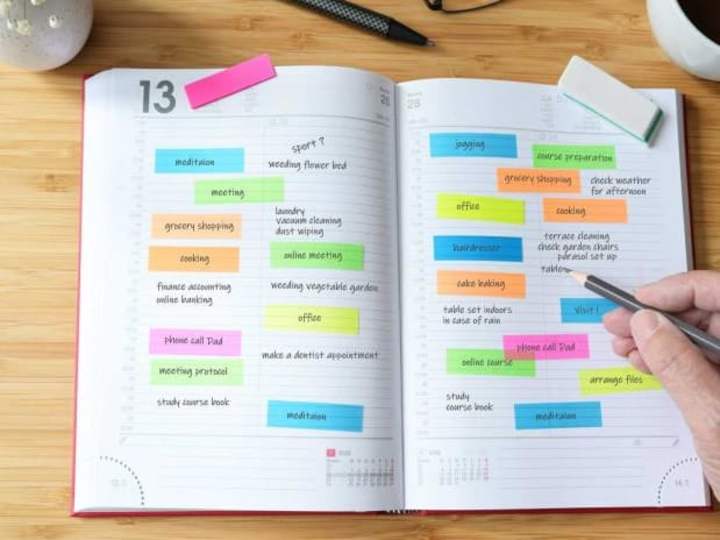 13
28
sport ?
meditaion
weeding flower bed
meeting
laundry
vacuum cleaning
dust wiping
grocery shopping
cooking
online meeting
finance accounting
online banking
weeding vegetable garden
office
phone call Dad
make a dentist appointment
meeting protocol
study course book
meditaion
28
jogging
course preparation
grocery shopping
check weather
for afternoon
office
cooking
terrace cleaning
check garden chairs
parasol set up
table
hairdresser
cake baking
table set indoors
in case of rain
Visit !
phone call Dad
online course
arrange files
study
course book
meditaion